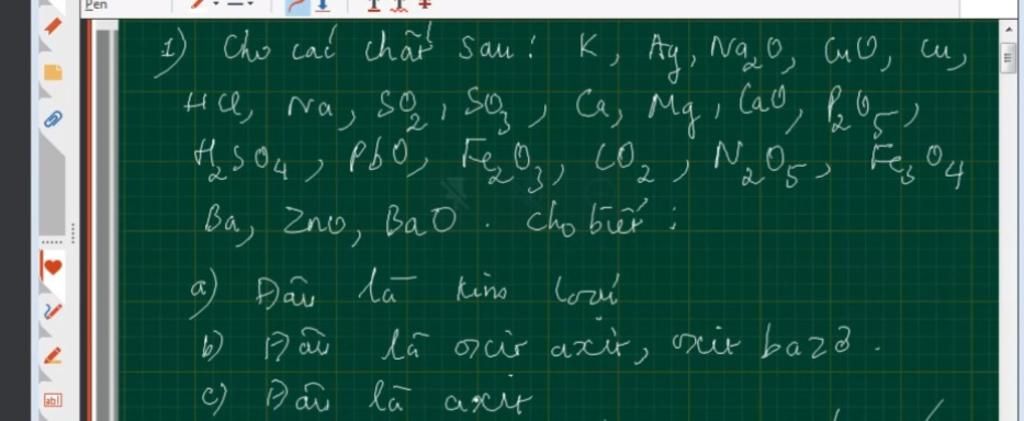 Pen
1) Cho các chất sau: K, Ag, Na2O, CuO, Cu,
HCl, Na, SO2, SO3, Ca, Mg, CaO, P2O5,
H2SO4, PbO, Fe2O3, CO2, N2O5, Fe3O4
Ba, ZnO, BaO. Cho biết:
a) Đâu là kim loại
b) Đâu là oxit axit, oxit bazơ.
c) Đâu là axit
ab|